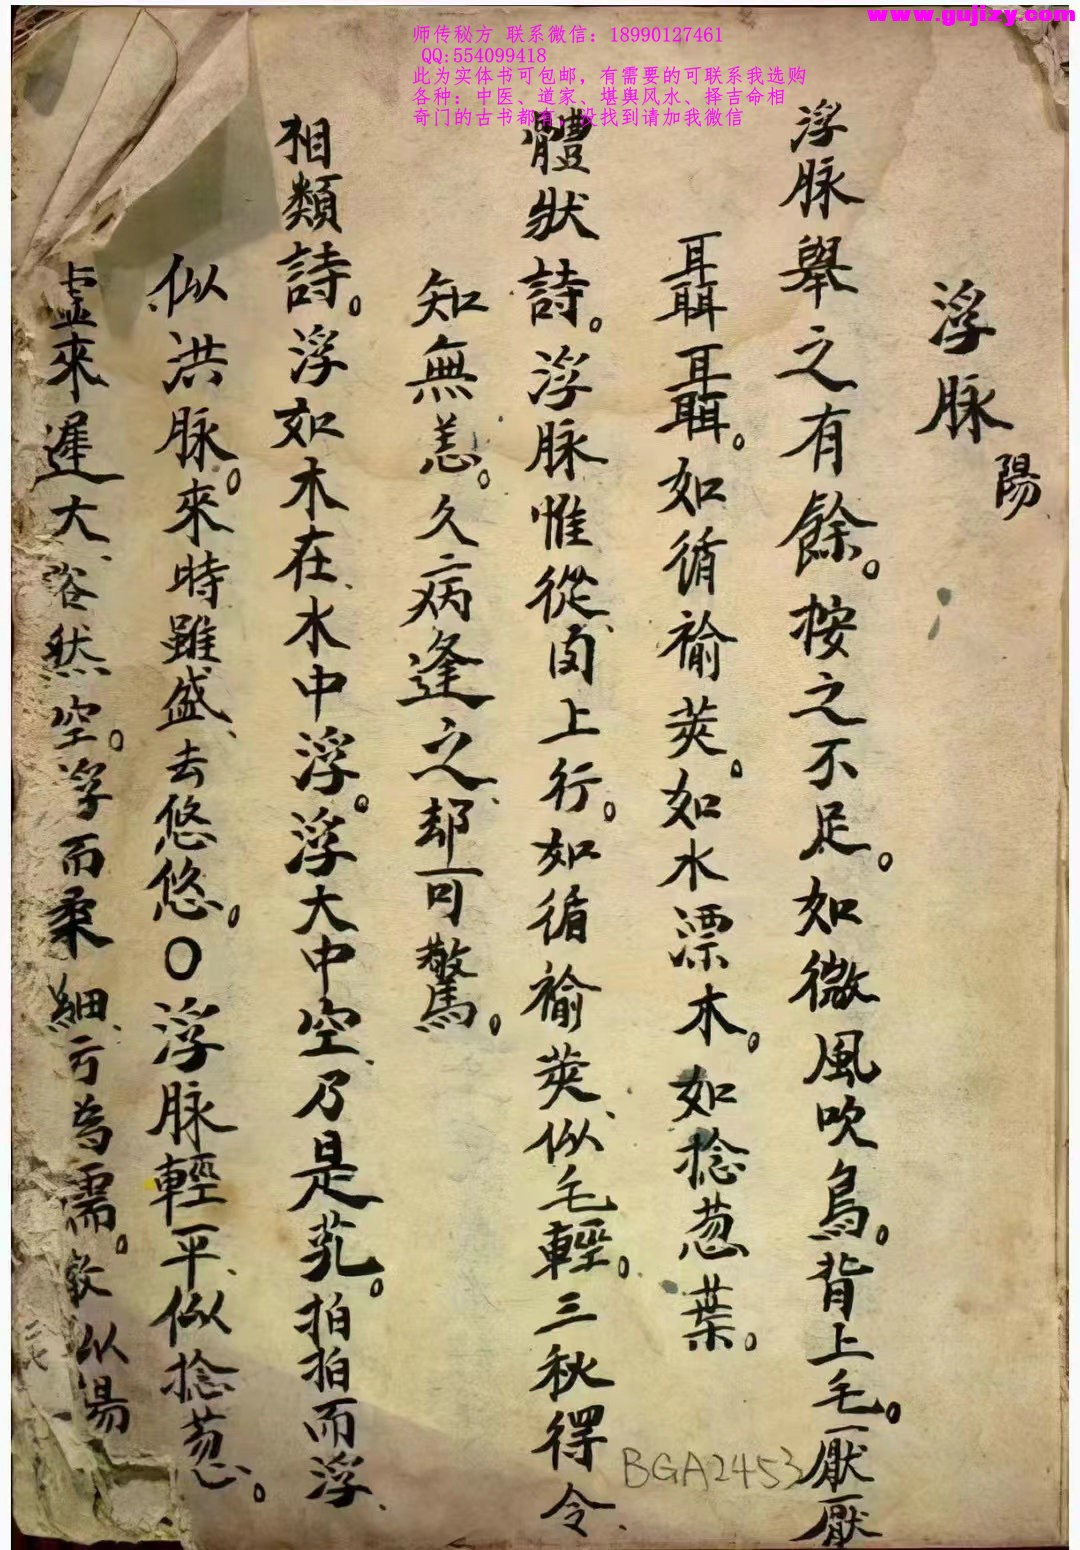 www.gujizy.com
师传秘方 联系微信：18990127461
QQ:554099418
此为实体书可包邮，有需要的可联系我选购
各种：中医、道家、堪舆风水、择吉命相
奇门的古书都有，没找到请加我微信
浮脉陽
浮脉舉之有餘。按之不足。如微風吹鳥。背上毛。厭厭
聶聶。如循褕莢。如水漂木。如捻葱葉。
體狀詩。浮脉惟從肉上行。如循褕莢、似毛輕。三秋得令、
知無恙。久病逢之、却可驚。
相類詩。浮如木在、水中浮。浮大中空、乃是芤。拍拍而浮、
似洪脉。來時雖盛、去悠悠。〇浮脉輕平、似捻葱。
虛來遲大、谿然空。浮而柔細、方為濡。散似揚
BGA2453